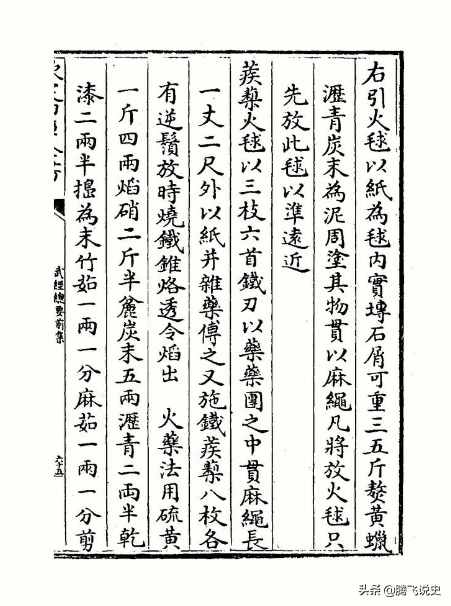 右引火毬以紙為毬内實塼石屑可重三五斤熬黃蠟
瀝青炭末為泥周塗其物貫以麻繩凡將放火毬只
先放此毬以準遠近
蒺蔾火毬以三枝六首鐵刃以藥藥團之中貫麻繩長
一丈二尺外以紙并雜藥傅之又施鐵蒺蔾八枚各
有逆鬚放時燒鐵錐烙透令焰出 火藥法用硫黃
一斤四兩焰硝二斤半麄炭末五兩瀝青二兩半乾
漆二兩半搗為末竹茹一兩一分麻茹一兩一分剪
武經總要前集
六十五
头条 @腾飞说史